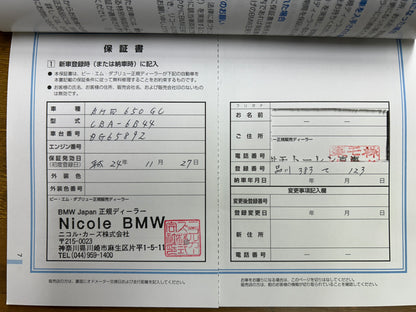 保証書
1 新車登録時（または納車時）に記入
● 本保証書は、ビー・エム・ダブリュー正規ディーラーが下記の自動車を
本書記載の保証条件に従って無料修理することをお約束するものです。
● お客様の氏名、お客様の住所、販売会社名、および販売会社印のないもの
は無効です。
車種 BMW 650 GC
型式 CBA-6B44
車台番号
エンジン番号
保証発効日 平成 24年 11月 27日
(初度登録日)
外装色
外装色番号
ビー・エム・ダブリュー正規販売ディーラー
BMW Japan 正規ディーラー
Nicole BMW
ニコル・カーズ株式会社
〒215-0023
神奈川県川崎市麻生区片平1-5-11
TEL (044) 959-1400
7
お名前
ご住所
電話番号
登録番号 品川 383 て 123
納車年月日 年 月 日
変更事項記入欄
変更後登録番号
登録変更日 年 月 日
新住所
電話番号